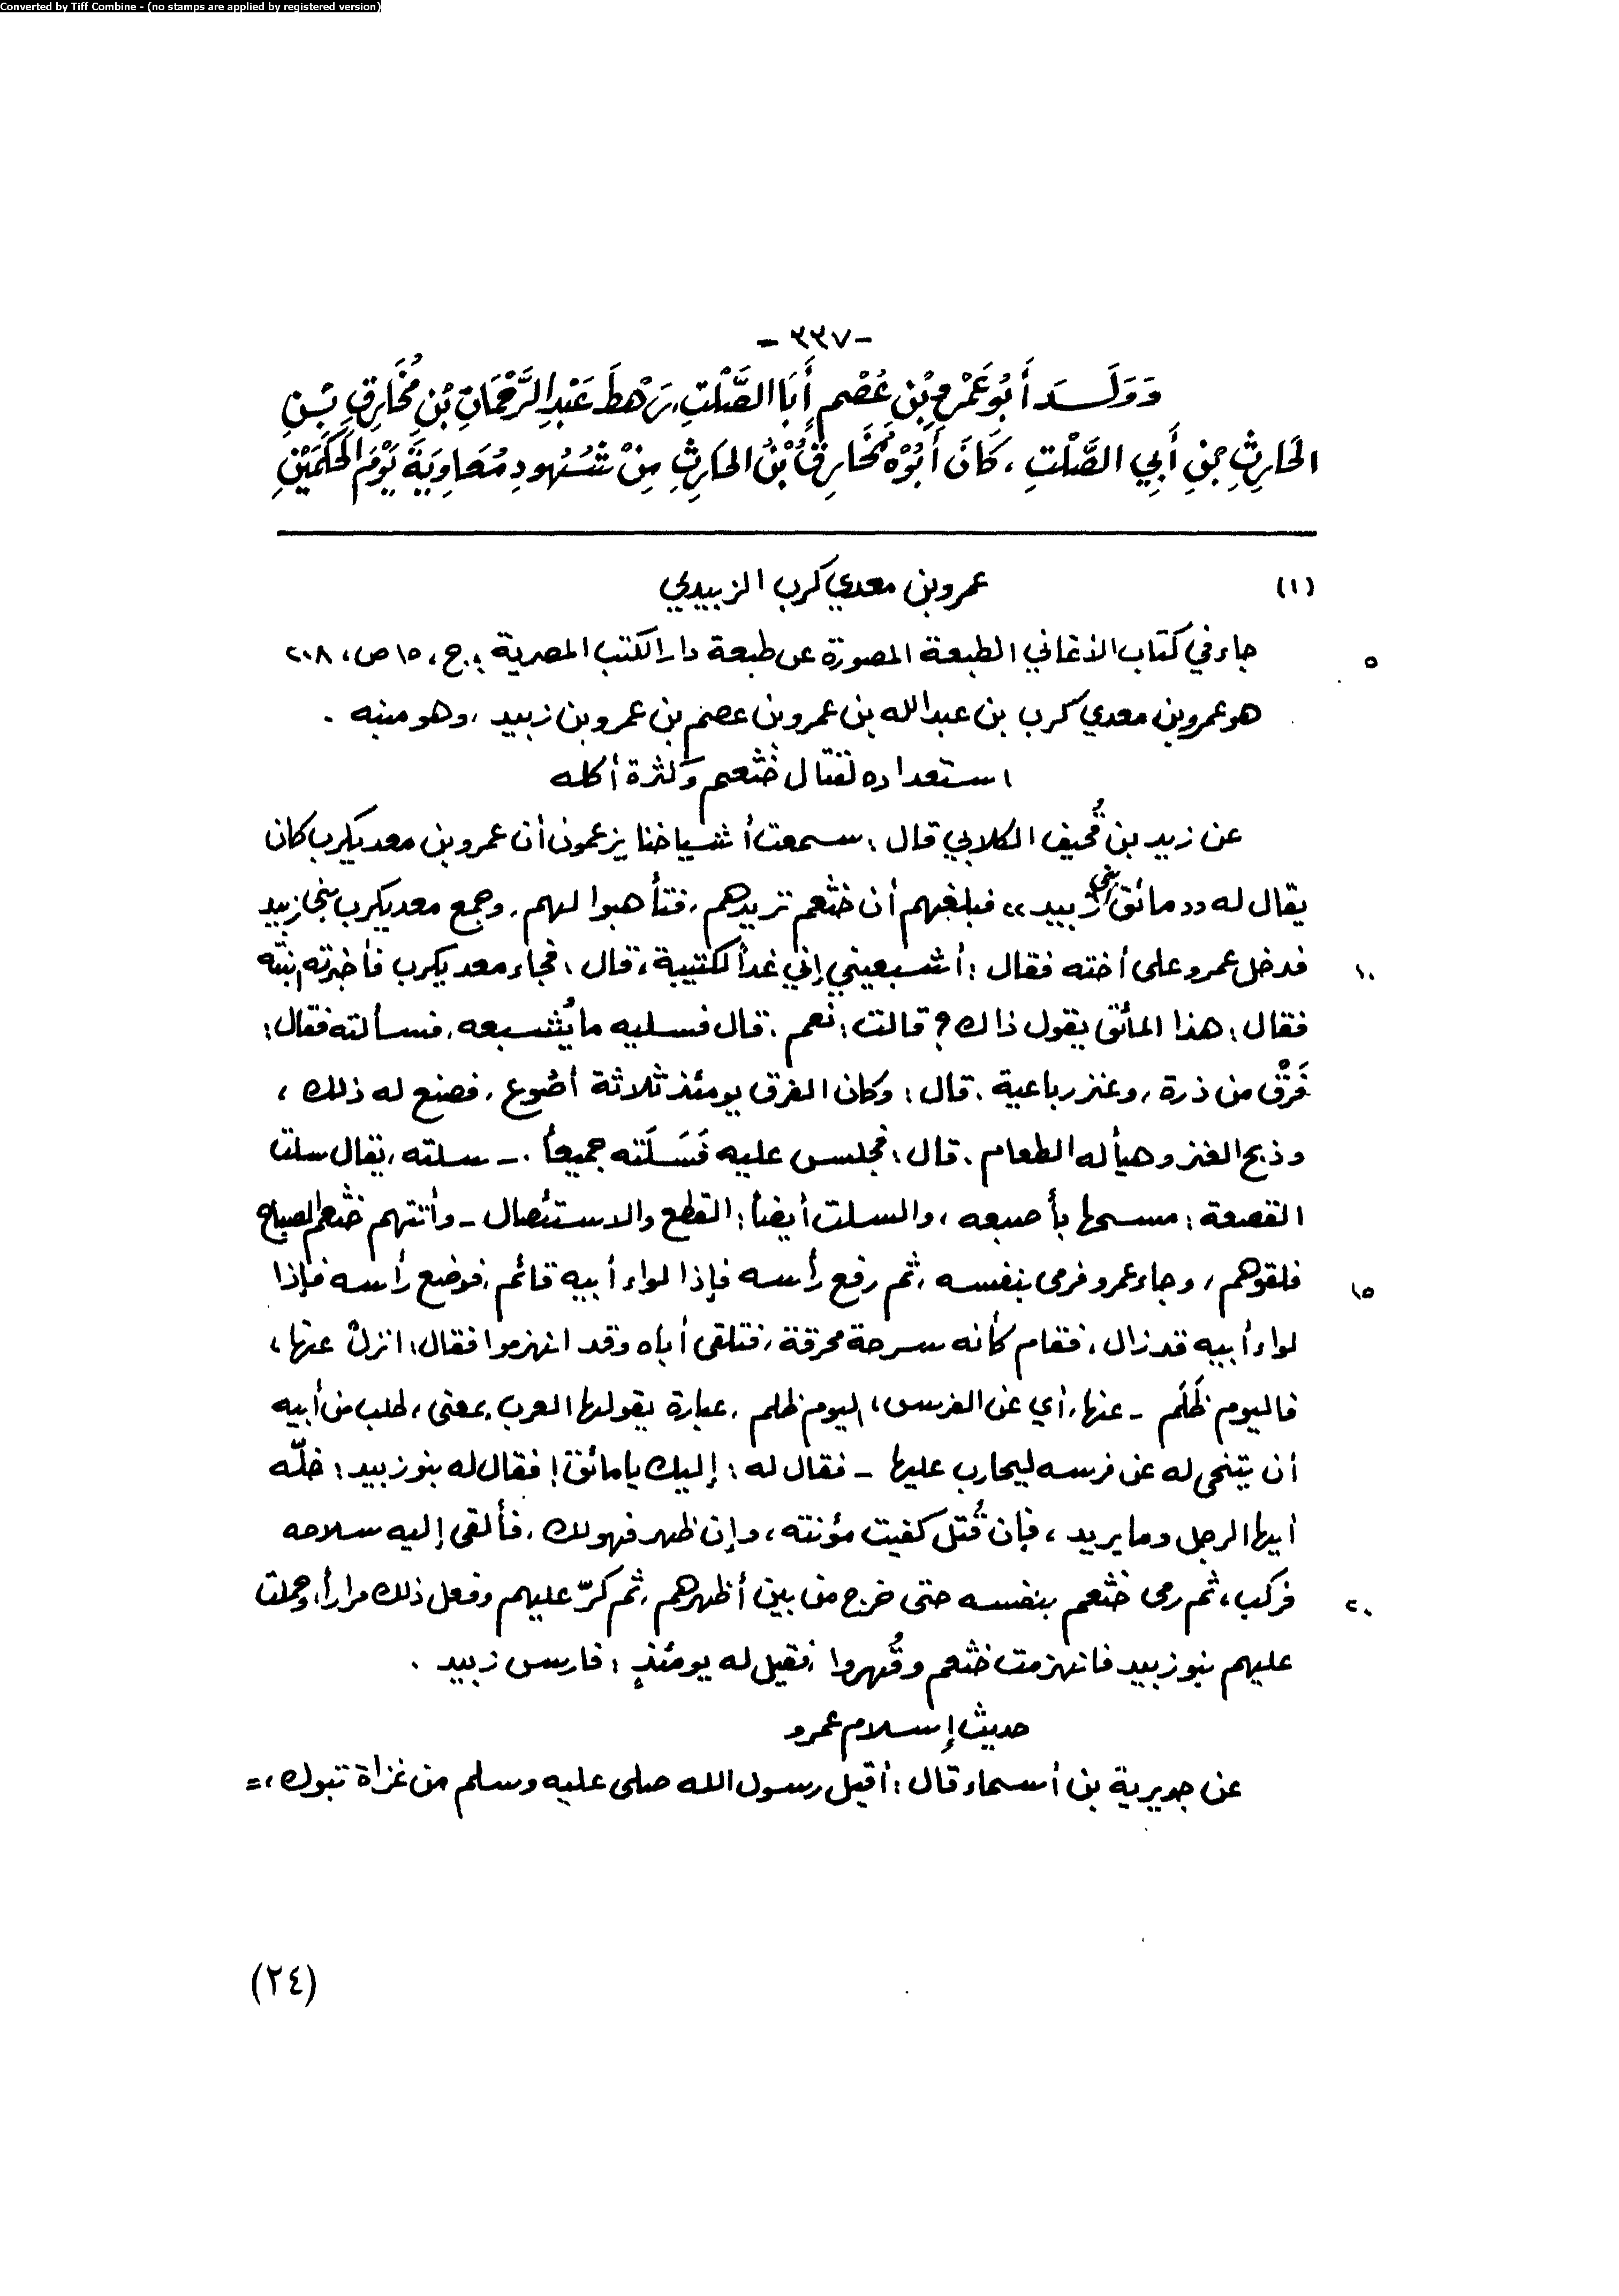 Converted by Tiff Combine - (no stamps are applied by registered version)
- ٣٣٧ -
وَوَلَدَ أَبُو عَمْرِو بْنِ عُصْمٍ أَبَا الصَّلْتِ، رَهْطَ عَبْدِ الرَّحْمَانِ بْنِ مُخَارِقِ بْنِ
الحَارِثِ بْنِ أَبِي الصَّلْتِ، كَانَ أَبُوْهُ مُخَارِقُ بْنُ الحَارِثِ مِنْ شُهُودِ مُعَاوِيَةَ يَوْمَ الحَكَمَيْنِ
(١) عمرو بن معدي كرب الزبيدي
جاء في كتاب الأغاني الطبعة المصورة عن طبعة دار الكتب المصرية ، ج، ١٥ ص، ٢٠٨ ٥
هو عمرو بن معدي كرب بن عبد الله بن عمرو بن عصم بن عمرو بن زبيد ، وهو منبه .
استعداده لقتال خثعم وكثرة أكله
عن زيد بن قُحيف الكلابي قال : سمعت أشياخنا يزعمون أن عمرو بن معديكرب كان
يقال له «مائق بني زبيد» فبلغهم أن خثعم تريدهم، فتأهبوا لهم، وجمع معديكرب بني زبيد
فدخل عمرو على أخته فقال : أشبعيني إني غداً لكتيبة، قال : فجاء معديكرب فأخبرته ابنته ١٠
فقال : هذا المائق يقول ذاك ؟ قالت : نعم . قال فسليه ما يُشبعه. فسألته فقال :
فَرْق من ذرة، وعنز رباعية . قال : وكان الفرق يومئذ ثلاثة أصُوع . فصنع له ذلك ،
وذبح العنز وهيأ له الطعام . قال : فجلس عليه فَسَلَته جميعاً .- سلته، يقال سلت
القصعة : مسحها بأصبعه ، والسلت أيضاً : القطع والاستئصال - وأتتهم خثعم الصباح
فلقوهم ، وجاء عمرو فرمى بنفسه ، ثم رفع رأسه فإذا لواء أبيه قائم ، فوضع رأسه فإذا ١٥
لواء أبيه قد زال ، فقام كأنه سرحة محرقة ، فتلقى أباه وقد انهزموا فقال : انزل عنها ،
فاليوم ظَلَم - عنها، أي عن الفرس، اليوم ظلم ، عبارة يقولها العرب بمعنى، طلب من أبيه
أن يتنحى له عن فرسه ليحارب عليها - فقال له : إليك يا مائق ! فقال له بنو زبيد : خلّه
أيها الرجل وما يريد ، فإن قُتل كفيت مؤنته ، وإن ظهر فهو لك . فألقى إليه سلاحه
فركب ، ثم رمى خثعم بنفسه حتى خرج من بين أظهرهم ، ثم كرّ عليهم وفعل ذلك مراراً، وحملت ٢٠
عليهم بنو زبيد فانهزمت خثعم وقُهروا ، فقيل له يومئذٍ : فارس زبيد .
حديث إسلام عمرو
عن جويرية بن أسماء قال : أقبل رسول الله صلى عليه وسلم من غزاة تبوك ، =
(٢٤)